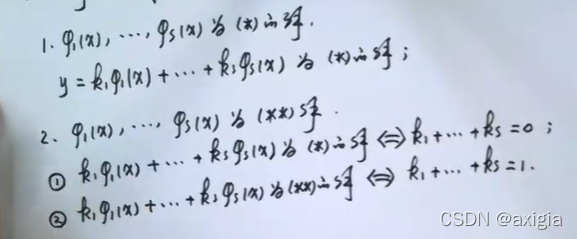 1. φ₁(x), ⋯, φs(x) 为 (*) 的解.
y = k₁φ₁(x) + ⋯ + ksφs(x) 为 (*) 的解;
2. φ₁(x), ⋯, φs(x) 为 (**) 解.
① k₁φ₁(x) + ⋯ + ksφs(x) 为 (*) 的解 ⇔ k₁ + ⋯ + ks = 0 ;
② k₁φ₁(x) + ⋯ + ksφs(x) 为 (**) 的解 ⇔ k₁ + ⋯ + ks = 1.
CSDN @axigia